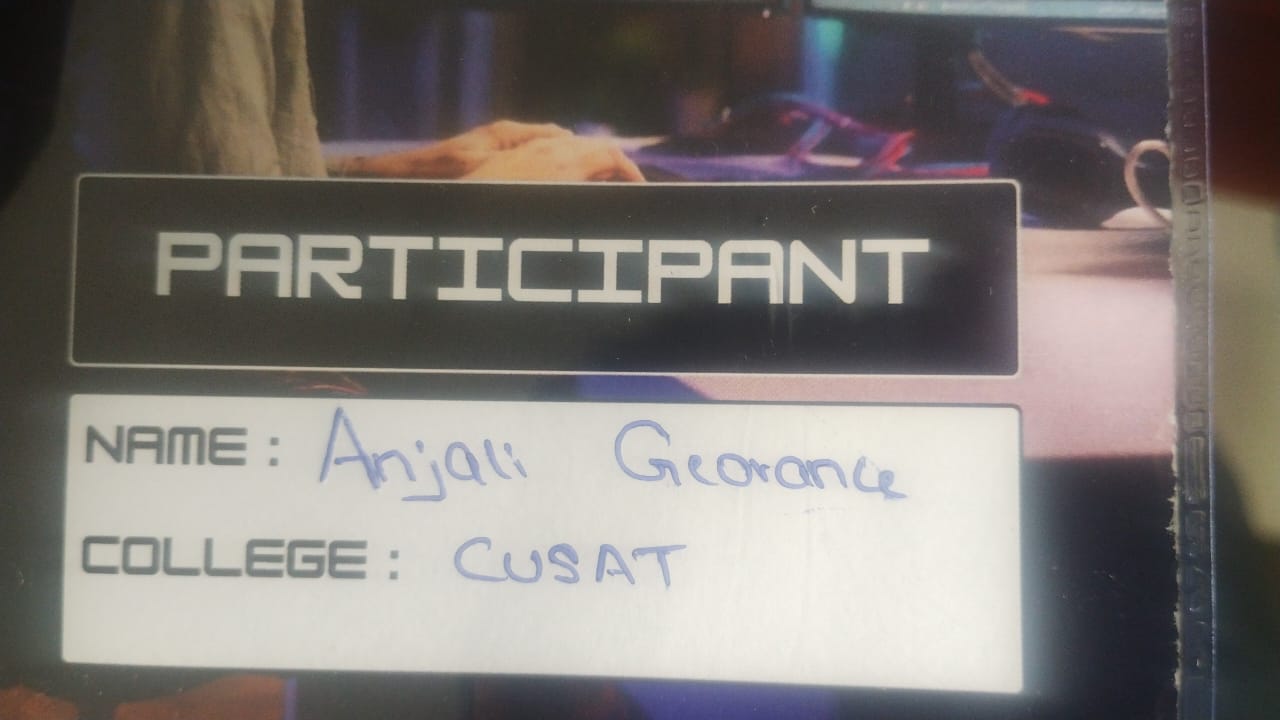 PARTICIPANT
NAME: Anjali Georance
COLLEGE: CUSAT